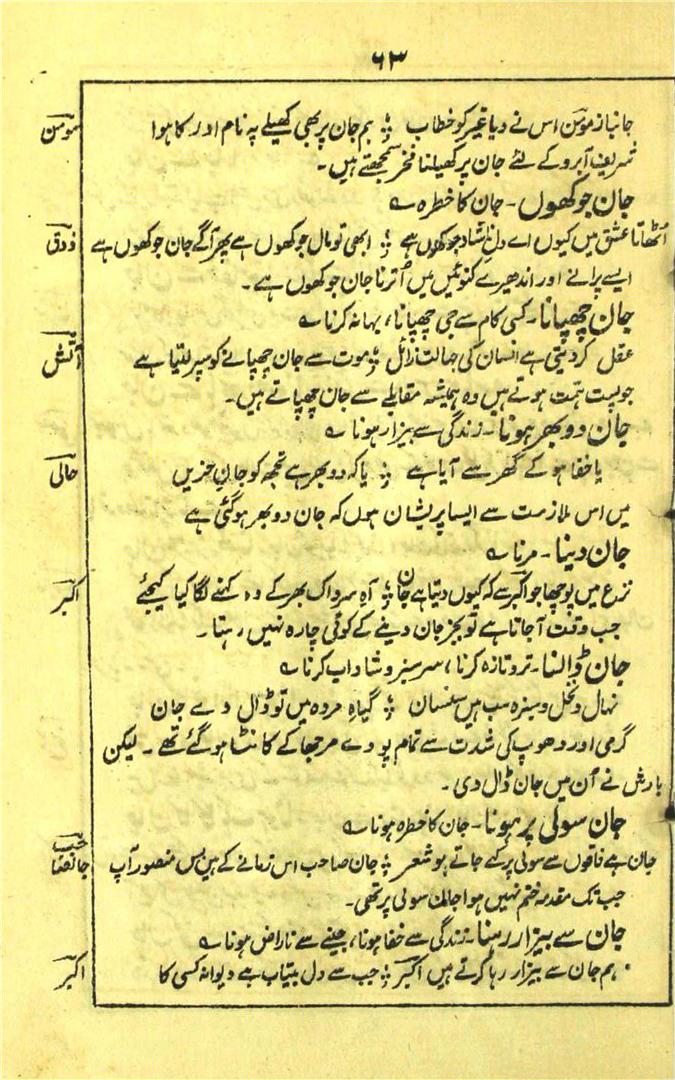 ۶۳
جانباز مومن اس نے دیا غیر کو خطاب ؛ ہم جان پر بھی کھیلے پہ نام اور کا ہوا
مومن
شریف آبرو کے لئے جان پر کھیلنا فخر سمجھتے ہیں۔
جان جوکھوں۔ جان کا خطرہ ے
اٹھاتا عشق میں کیوں اے دل ناشاد جوکھوں ہے ؛ ابھی تو مال جوکھوں ہے پھر آگے جان جوکھوں ہے
ذوق
ایسے پرانے اور اندھیرے کنوئیں میں اُترنا جان جوکھوں ہے۔
جان چھپانا۔ کسی کام سے جی چھپانا، بہانہ کرنا ے
عقل کر دیتی ہے انسان کی جہالت زائل ؛ موت سے جان چھپانے کو سپر لیتا ہے
آتش
جو پست ہمت ہوتے ہیں وہ ہمیشہ مقابلے سے جان چھپاتے ہیں۔
جان دوبھر ہونا۔ زندگی سے بیزار ہونا ے
یا خفا ہو کے گھر سے آیا ہے ؛ یا کہ دوبھر ہے تجھ کو جانِ حزیں
حالی
میں اس ملازمت سے ایسا پریشان ہوں کہ جان دوبھر ہو گئی ہے
جان دینا۔ مرنا ے
نزع میں پوچھا جو اکبر سے کہ کیوں دیتا ہے جان ؛ آہِ سرد اک بھر کے وہ کہنے لگا کیا کیجئے
اکبر
جب وقت آ جاتا ہے تو بجز جان دینے کے کوئی چارہ نہیں رہتا۔
جان ڈالنا۔ تر و تازہ کرنا، سرسبز و شاداب کرنا ے
نہال و نخل و سبزہ سب ہیں سنسان ؛ گیاہِ مردہ میں تو ڈال دے جان
گرمی اور دھوپ کی شدت سے تمام پودے مرجھا کے کانٹا ہو گئے تھے۔ لیکن
بارش نے اُن میں جان ڈال دی۔
جان سولی پر ہونا۔ جان کا خطرہ ہونا ے
جان ہے فاقوں سے سولی پر کہے جاتے ہو شعر ؛ جان صاحب اس زمانے کے ہیں بس منصور آپ
جان صاحب
جب تک مقدمہ ختم نہیں ہوا جان سولی پر تھی۔
جان سے بیزار رہنا۔ زندگی سے خفا ہونا، جینے سے ناراض ہونا ے
ہم جان سے بیزار رہا کرتے ہیں اکبر ؛ جب سے دل بیتاب ہے دیوانہ کسی کا
اکبر